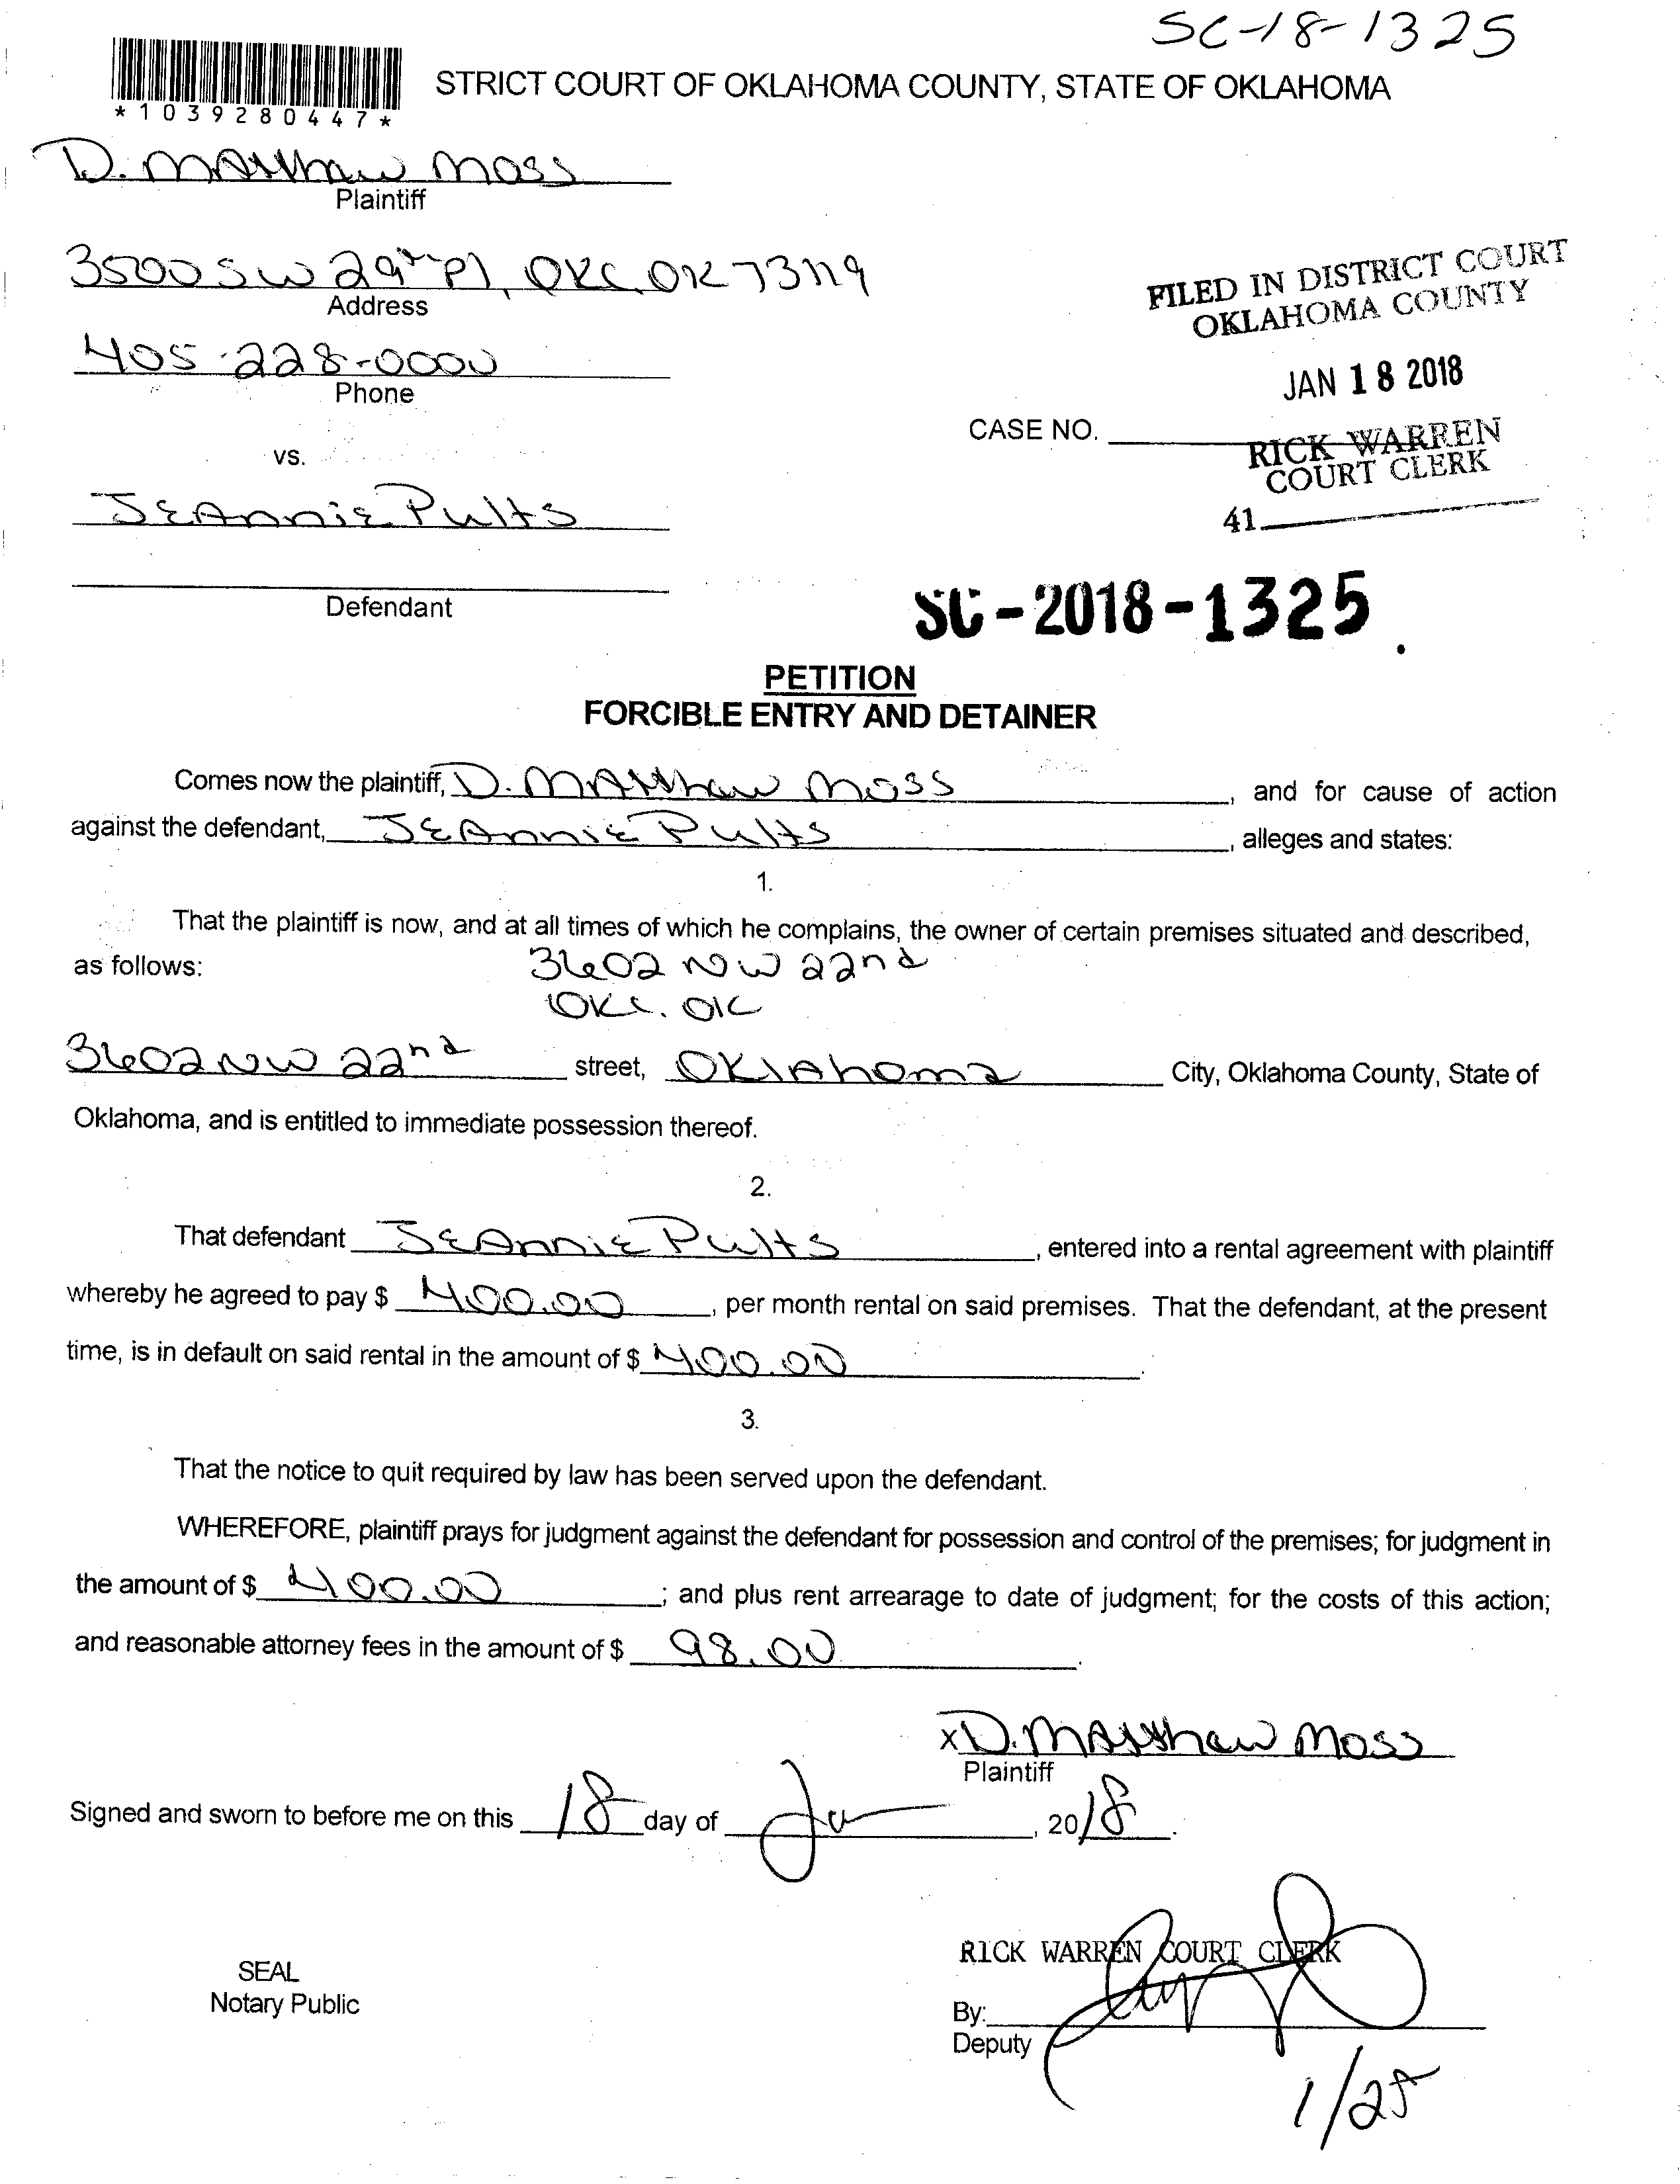 SC-18-1325
STRICT COURT OF OKLAHOMA COUNTY, STATE OF OKLAHOMA
*1039280447*
D. Matthew Moss
Plaintiff
3500 SW 29th Pl, OKC, OK 73119
Address
405-228-0000
Phone
vs.
Jeannie Pults
Defendant
FILED IN DISTRICT COURT
OKLAHOMA COUNTY
JAN 18 2018
CASE NO.
RICK WARREN
COURT CLERK
41
SC-2018-1325
PETITION
FORCIBLE ENTRY AND DETAINER
Comes now the plaintiff, D. Matthew Moss, and for cause of action
against the defendant, Jeannie Pults, alleges and states:
1.
That the plaintiff is now, and at all times of which he complains, the owner of certain premises situated and described,
as follows: 3602 NW 22nd
OKC. OK
3602 NW 22nd street, Oklahoma City, Oklahoma County, State of
Oklahoma, and is entitled to immediate possession thereof.
2.
That defendant Jeannie Pults, entered into a rental agreement with plaintiff
whereby he agreed to pay $ 400.00, per month rental on said premises. That the defendant, at the present
time, is in default on said rental in the amount of $ 400.00.
3.
That the notice to quit required by law has been served upon the defendant.
WHEREFORE, plaintiff prays for judgment against the defendant for possession and control of the premises; for judgment in
the amount of $ 400.00; and plus rent arrearage to date of judgment; for the costs of this action;
and reasonable attorney fees in the amount of $ 98.00.
x D. Matthew Moss
Plaintiff
Signed and sworn to before me on this 18 day of Jan, 2018.
RICK WARREN COURT CLERK
SEAL
Notary Public
By:
Deputy
1/25